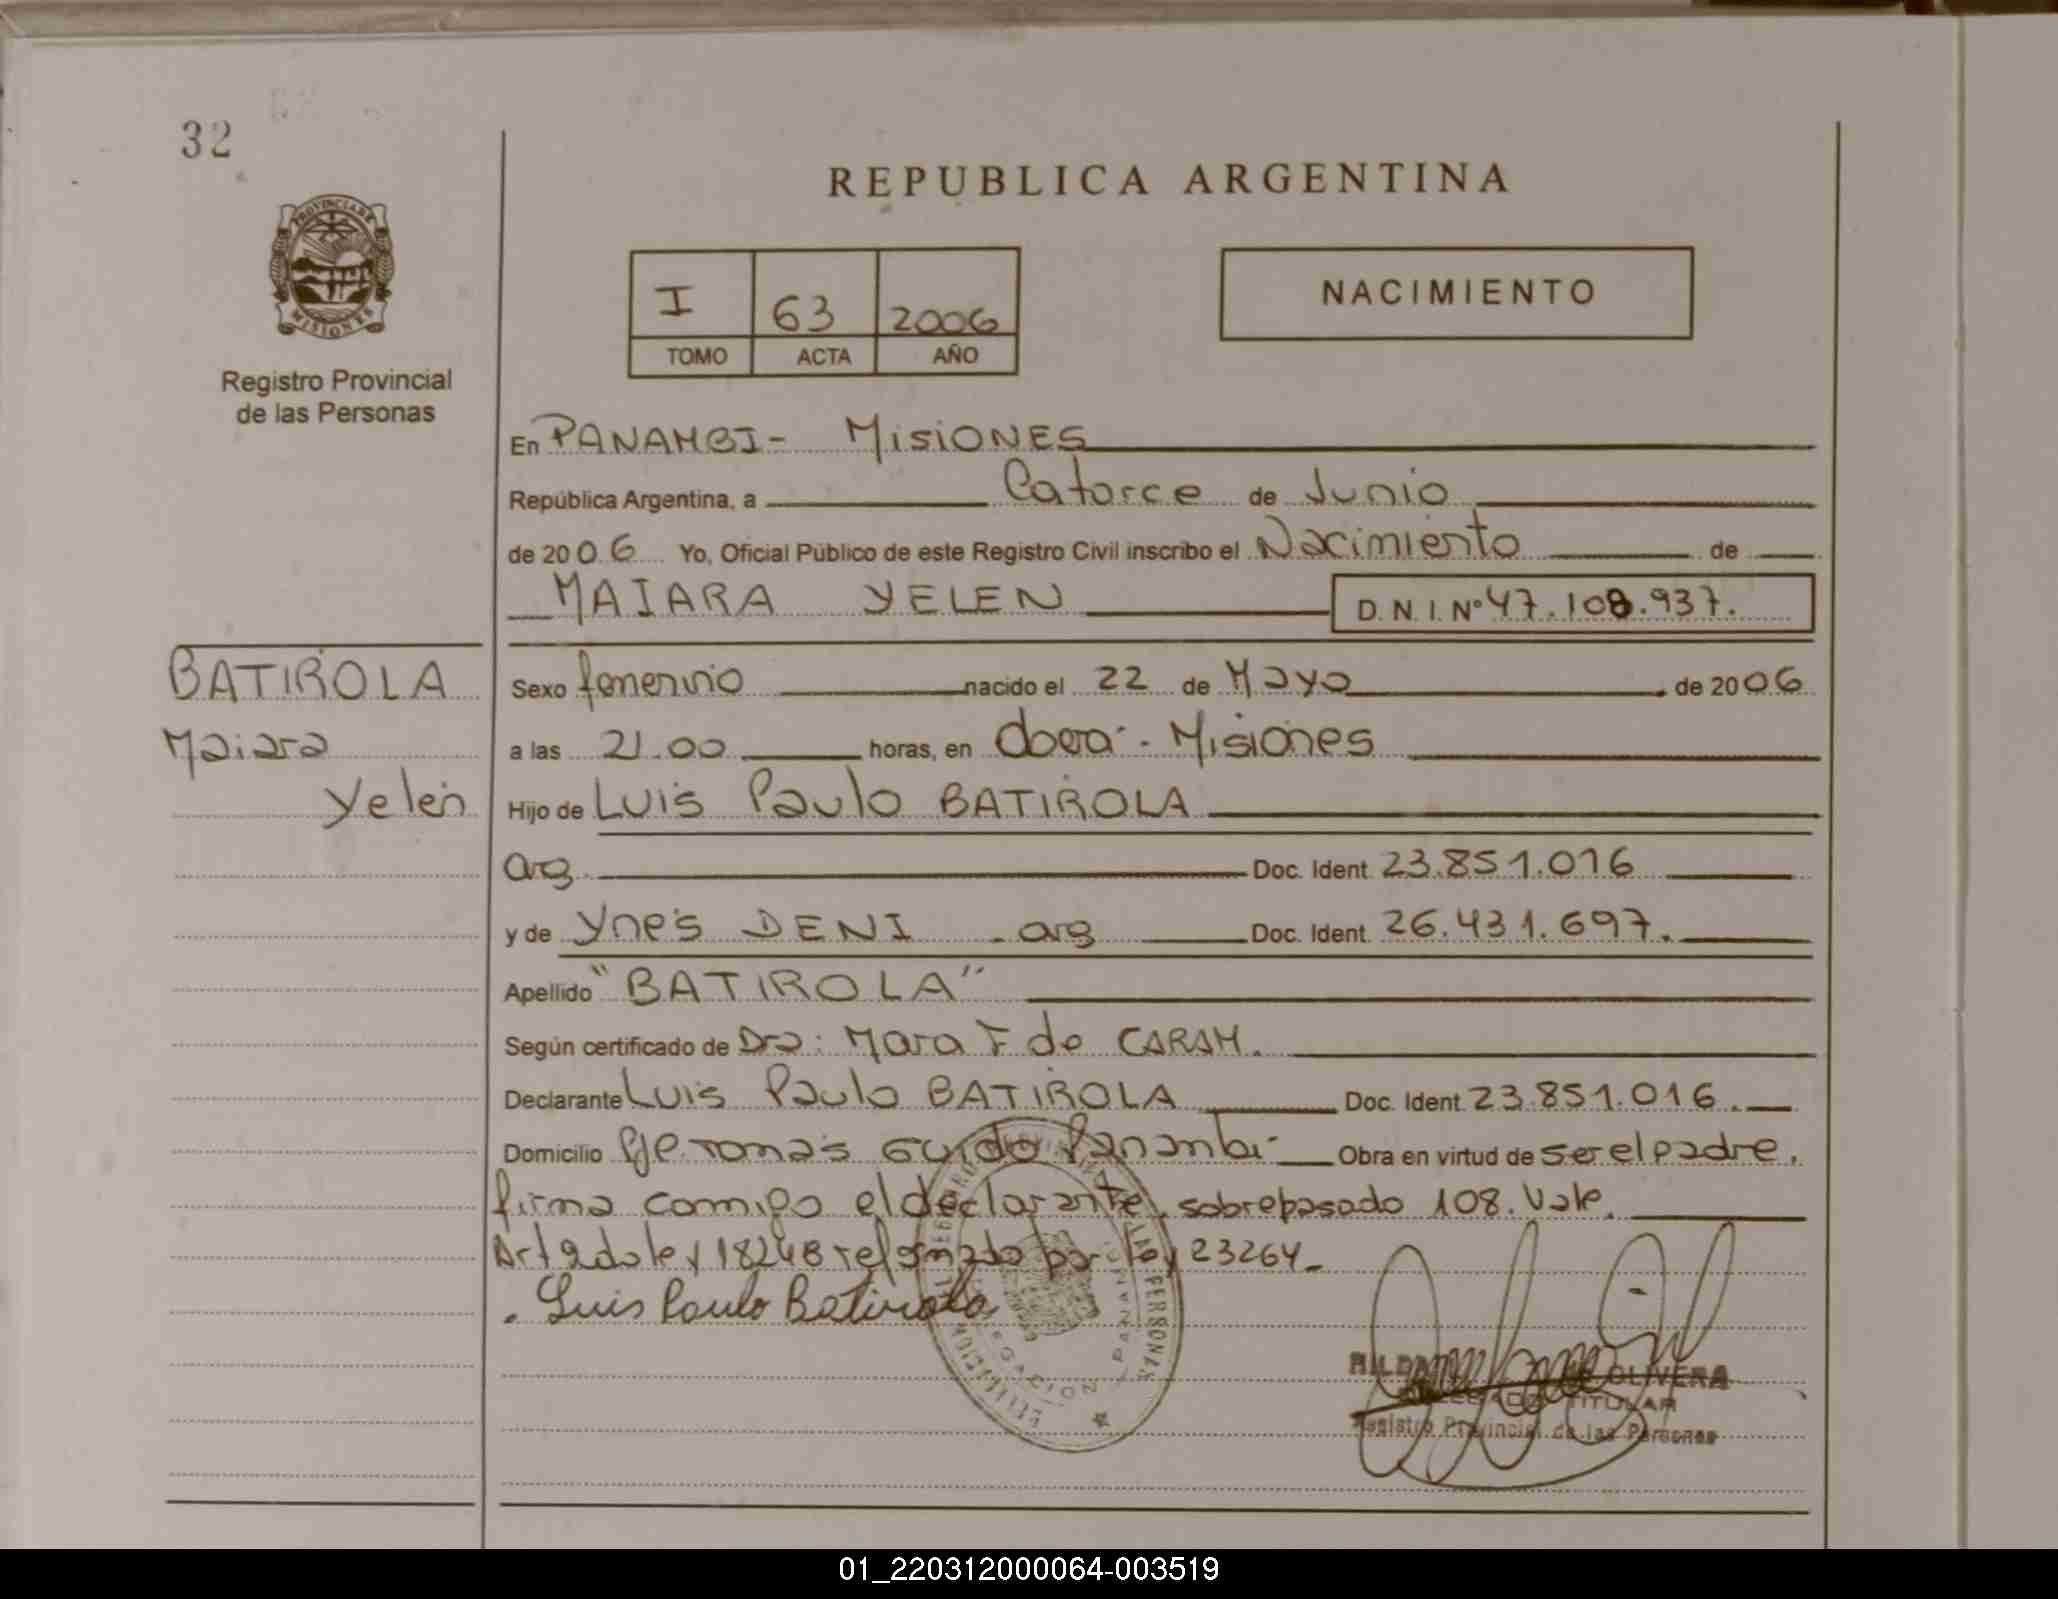 32
PROVINCIA DE
MISIONES
Registro Provincial
de las Personas
REPUBLICA ARGENTINA
I 63 2006
TOMO ACTA AÑO
NACIMIENTO
En PANAMBI - MISIONES
República Argentina, a Catorce de Junio
de 2006 Yo, Oficial Público de este Registro Civil inscribo el Nacimiento de
MAIARA YELEN D.N.I. Nº 47.108.937.
BATIROLA
Maiara
Yelen
Sexo femenino nacido el 22 de Mayo de 2006
a las 21.00 horas, en Oberá - Misiones
Hijo de LUIS Paulo BATIROLA
arg Doc. Ident. 23.851.016
y de Ynes DENI - arg Doc. Ident. 26.431.697.
Apellido "BATIROLA"
Según certificado de Dra: Mara F de CARAM.
Declarante LUIS Paulo BATIROLA Doc. Ident. 23.851.016.
Domicilio Pje. Tomas Guido Panambi - Obra en virtud de ser el padre,
firma comigo el declarante, sobrepasado 108. Vale.
Art 2 de ley 18248 reformado por ley 23264.
Luis Paulo Batirola
DELEGACION PANAMBI
OLIVERA
TITULAR
Registro Provincial de las Personas
01_220312000064-003519